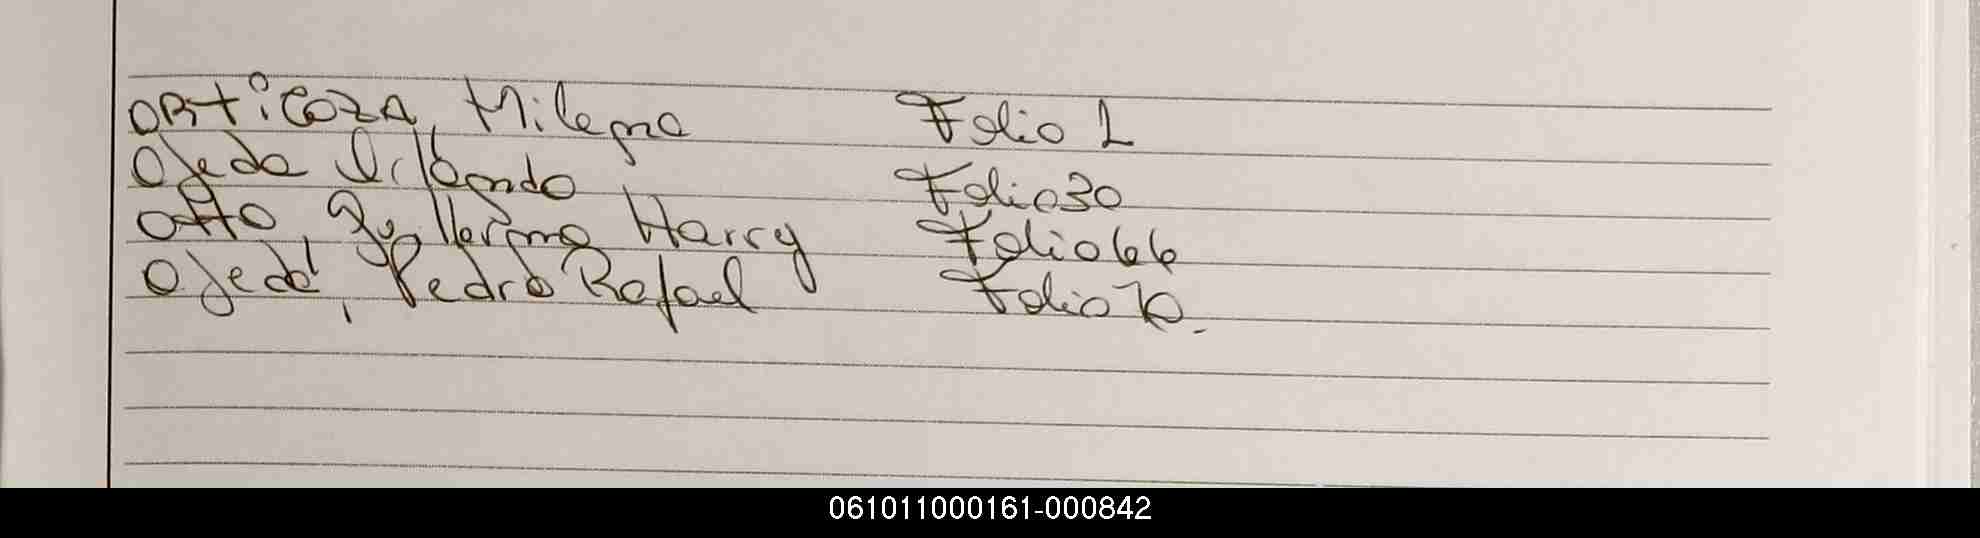 ORtigoza, Milena Folio 1
Ojeda Orlando Folio 30
Otto, Guillermo Harry Folio 66
Ojeda, Pedro Rafael Folio 70.
061011000161-000842